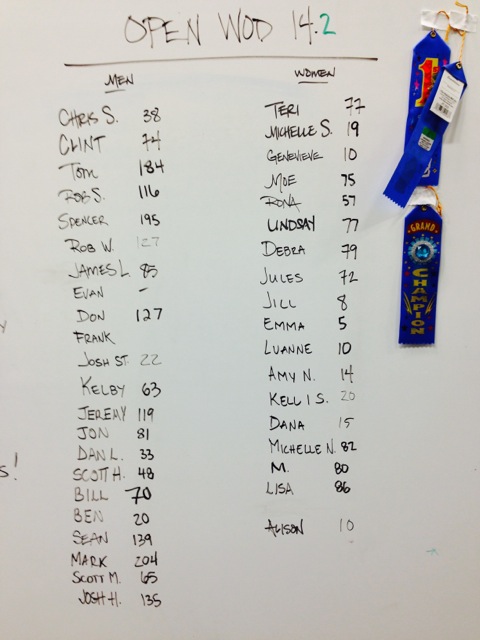 OPEN WOD 14.2
MEN
CHRIS S. 38
CLINT 74
Tom 184
ROB S. 116
SPENCER 195
ROB W. 127
JAMES L 85
EVAN -
DON 127
FRANK
JOSH ST. 22
KELBY 63
JEREMY 119
JON 81
DAN L. 33
SCOTT H. 48
BILL 70
BEN 20
SEAN 139
MARK 204
SCOTT M. 65
JOSH H. 135
WOMEN
TERI 77
MICHELLE S. 19
GENEVIEVE 10
MOE 75
RONA 57
LINDSAY 77
DEBRA 79
JULES 72
JILL 8
EMMA 5
LUANNE 10
AMY N. 14
KELLI S. 20
DANA 15
MICHELLE N. 82
M. 80
LISA 86
ALISON 10
1
GRAND
CHAMPION
S!